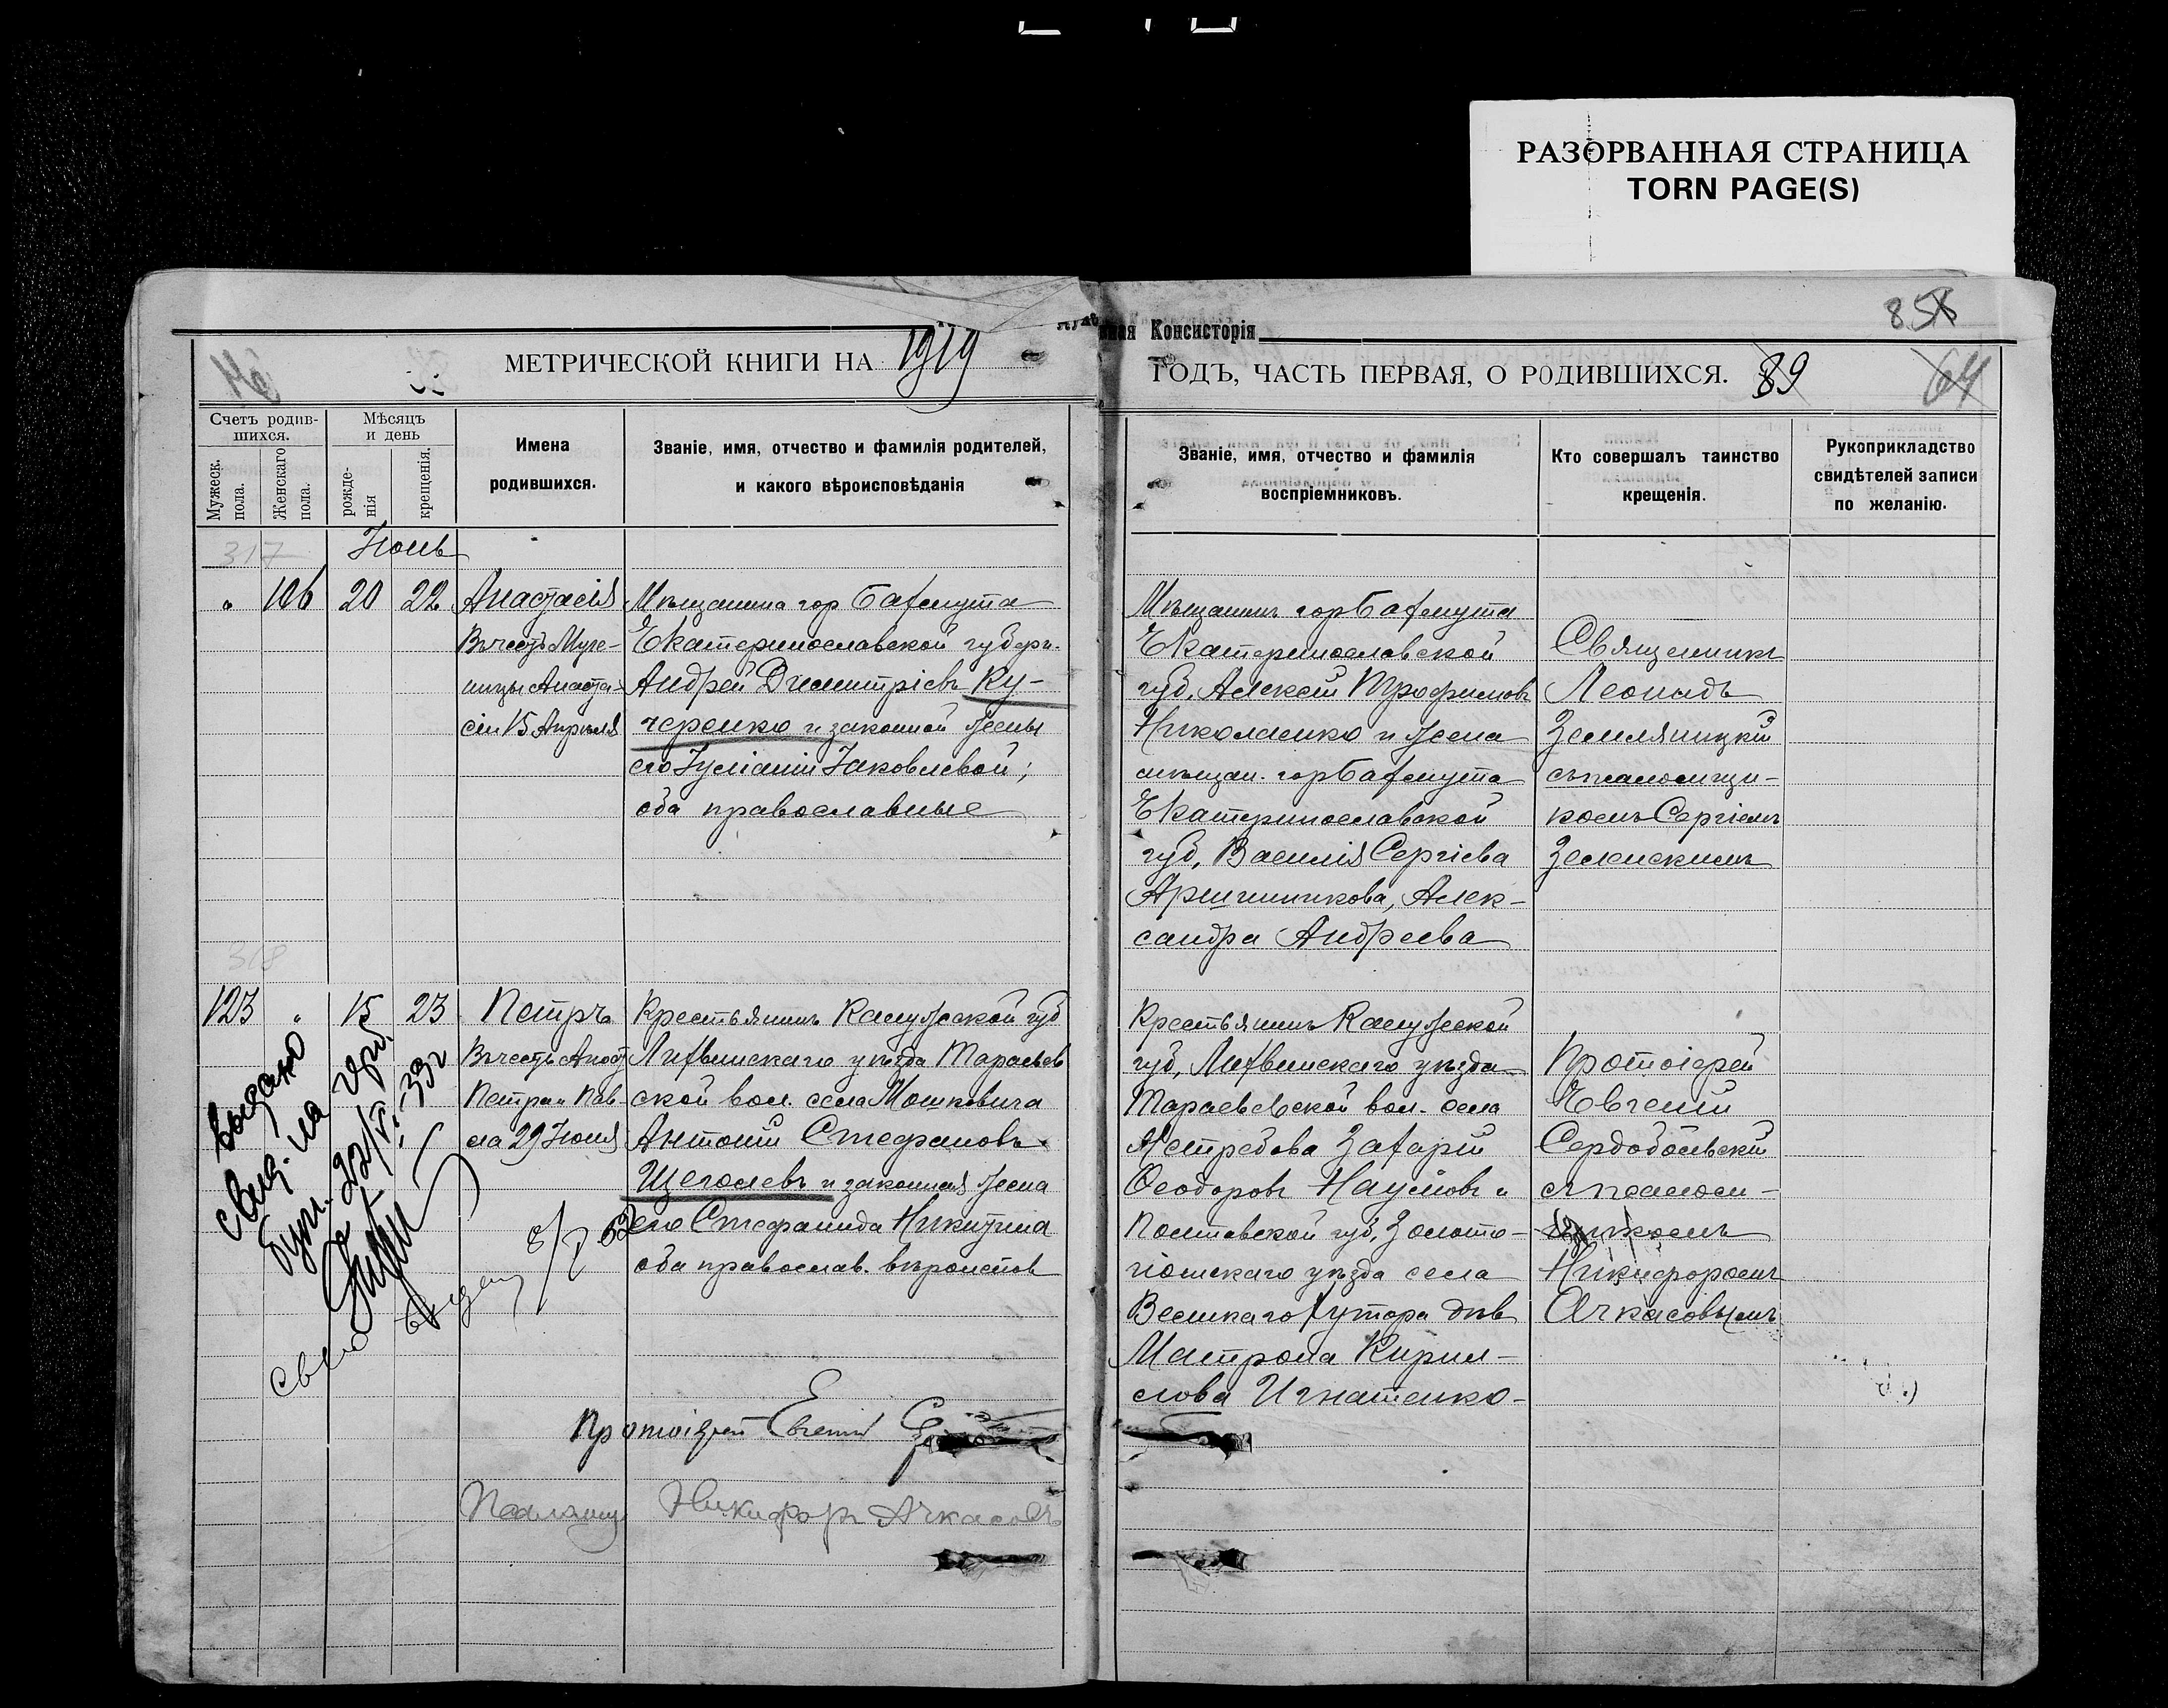 РАЗОРВАННАЯ СТРАНИЦА
TORN PAGE(S)
85
нная Консисторія
МЕТРИЧЕСКОЙ КНИГИ НА 1919
ГОДЪ, ЧАСТЬ ПЕРВАЯ, О РОДИВШИХСЯ. 89 64
Счетъ родив-
шихся.
Мужеск.
пола.
Женскаго
пола.
Мѣсяцъ
и день
рожде-
нія
крещенія.
Имена
родившихся.
Званіе, имя, отчество и фамилія родителей,
и какого вѣроисповѣданія
Званіе, имя, отчество и фамилія
воспріемниковъ.
Кто совершалъ таинство
крещенія.
Рукоприкладство
свидѣтелей записи
по желанію.
317
Іюнь
106 20 22
Анастасія
Въ честь Муче-
ницы Анаста-
сіи 15 Апрѣля
Мѣщанина гор Бахмута
Екатеринославской губерн.
Андрей Димитріевъ Ку-
ченко и законной жены
его Іуліаніи Іаковлевой;
оба православные
Мѣщанинъ гор Бахмута
Екатеринославской
губ. Алексѣй Трофимовъ
Николаенко и жена
мѣщан. гор Бахмута
Екатеринославской
губ. Василія Сергіева
Алек-
сандра Андреева
Священникъ
Леонидъ
Земляницкій
съ псаломщи-
комъ Сергіемъ
Зеленскимъ
318
123 15 23
Петръ
Въ честь Апост
Петра и Пав-
ла 29 Іюня
Крестьянинъ Калужской губ
Лихвинскаго уѣзда
ской вол. села Мошковича
Антоній Стефановъ
Щеголевъ и законная жена
его Стефанида Никитина
оба православ. вѣроиспов
Крестьянинъ Калужской
губ. Лихвинскаго уѣзда
вол. села
Захарій
Ѳеодоровъ Наумовъ и
Полтавской губ. Золото-
ношскаго уѣзда села
Великаго хутора дѣв
Матрона Кирил-
лова Игнатенко
Протоіерей
Евгеній
Сердобольскій
съ псаломщи-
комъ
Никифоромъ
Ачкасовымъ
Выдано
свид. на
бум. 22/VI-33г
8/I
Протоіерей Евгеній
Псаломщ Никифоръ Ачкасовъ